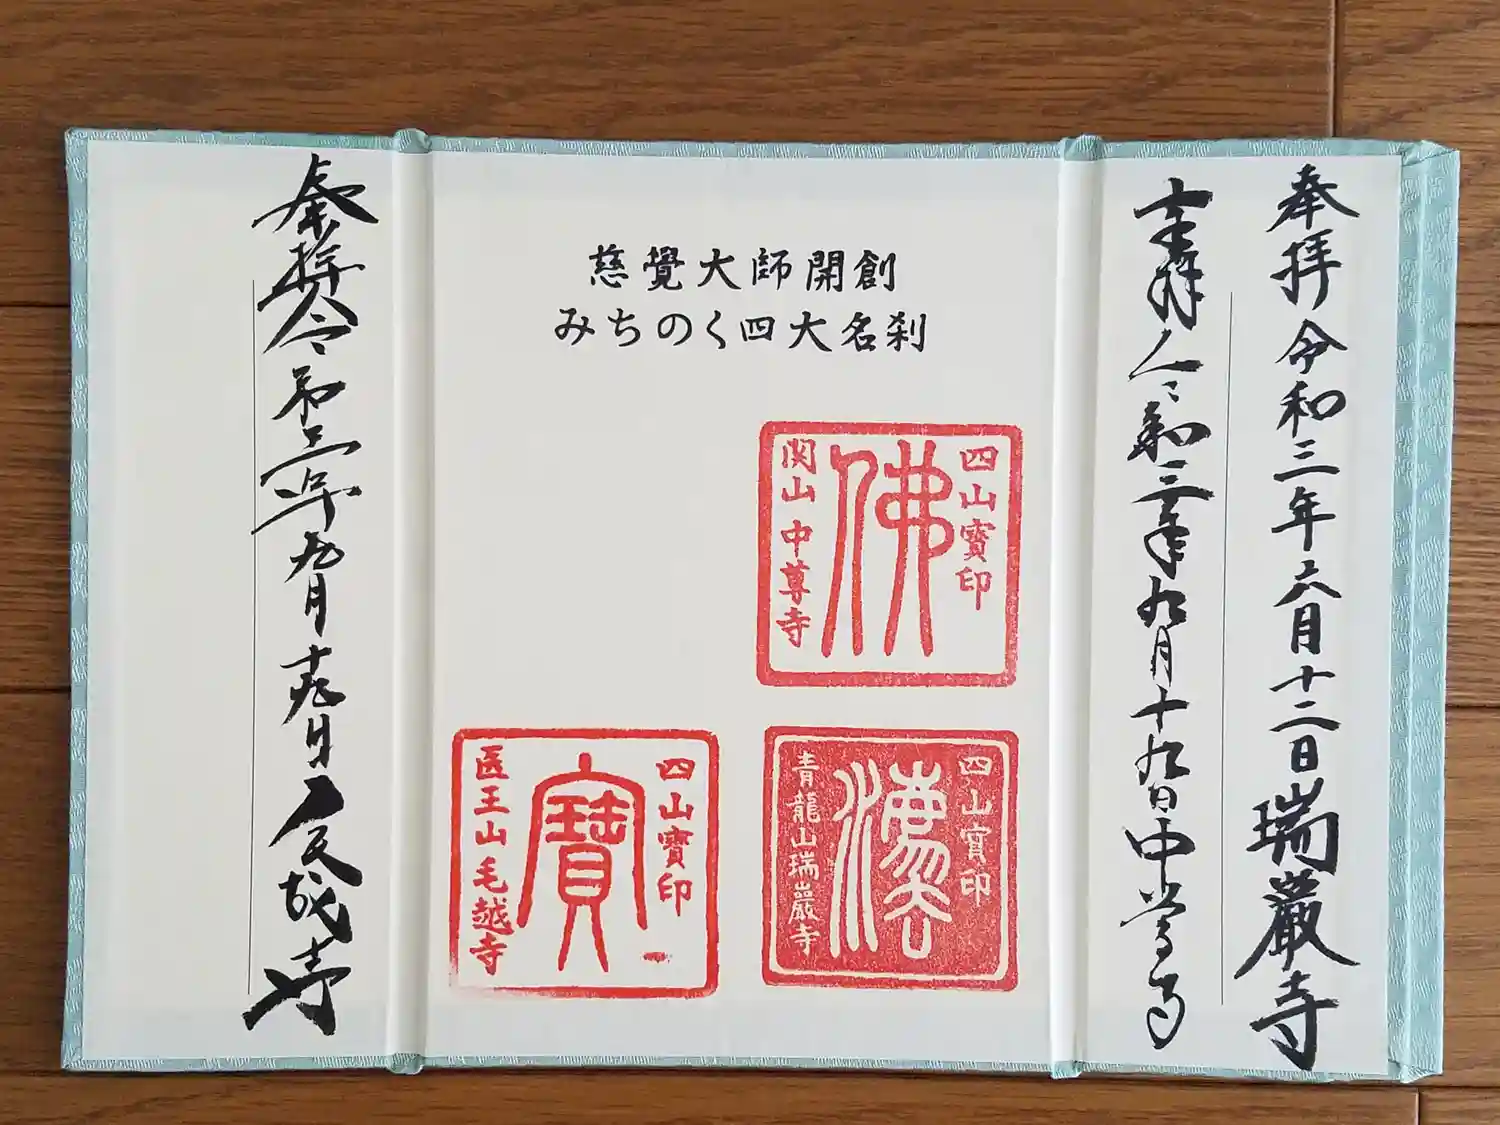 奉拝 令和三年六月十二日 瑞巖寺
奉拝 令和三年九月十九日 中尊寺
慈覺大師開創
みちのく四大名刹
四山寳印
佛
関山中尊寺
四山寳印
法
青龍山瑞巖寺
四山寳印
寶
医王山毛越寺
奉拝 令和三年九月十九日 毛越寺